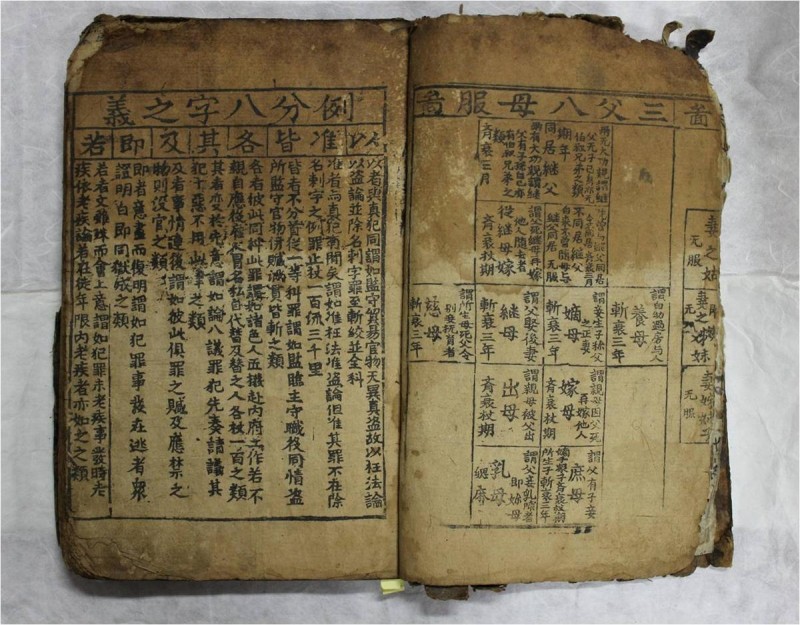 啚
妻之姑
无服
妻之姊妹
无服
无服
三父八母服啚
同居繼父
期年
齊衰三月
不同居繼父
无服
從繼母嫁
謂父死繼母再嫁
他人隨去者
齊衰杖期
養母
謂自幼過房与人
斬衰三年
嫡母
謂妾生子稱父
之正妻
斬衰三年
繼母
謂父娶後妻
斬衰三年
慈母
謂所生母死父令
別妾撫育者
斬衰三年
嫁母
謂親母因父死
再嫁他人
齊衰杖期
出母
謂親母被父出
齊衰杖期
庶母
謂父有子妾
嫡子眾子齊衰杖期
所生子斬衰三年
乳母
謂父妾乳哺者
即妳母
緦麻
例分八字之義
以 准 皆 各 其 及 即 若
以者與真犯同謂如監守貿易官物无異真盜故以枉法論
以盜論並除名刺字罪至斬絞並全科
准者與真犯有間矣謂如准枉法准盜論但准其罪不在除
名刺字之例罪止杖一百流三千里
皆者不分首從一等科罪謂如監臨主守職役同情盜
所監守官物併贓滿貫皆斬之類
各者彼此同科此罪謂如諸色人匠撥赴內府工作若不
親自應役雇人冒名私自代替及替之人各杖一百之類
其者變於先意謂如論八議罪犯先奏請議其
犯十惡不用此律之類
及者事情連後謂如彼此俱罪之贓及應禁之
物則沒官之類
即者意盡而復明謂如犯罪事發在逃者衆
證明白即同獄成之類
若者文雖殊而會上意謂如犯罪未老疾事發時老
疾依老疾論若在徒年限內老疾者亦如之之類